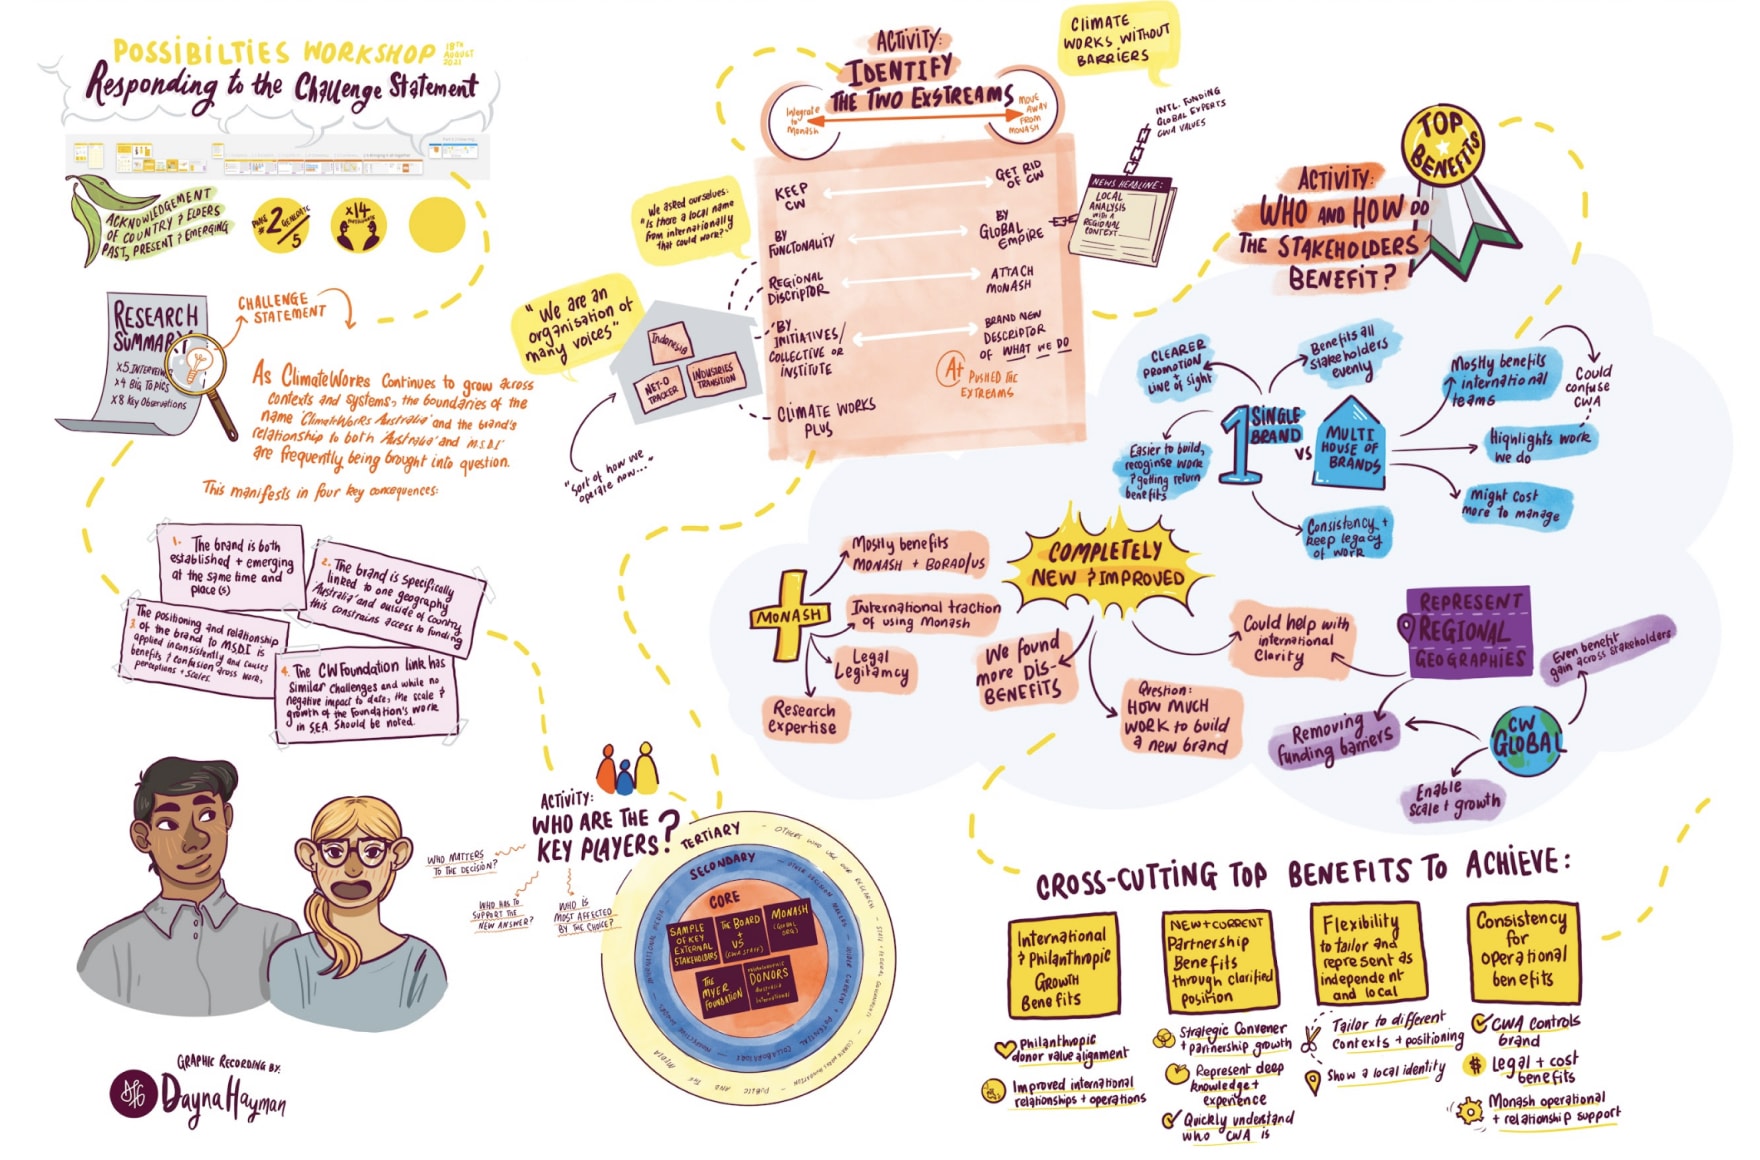 POSSIBILTIES WORKSHOP 18TH AUGUST 2021
Responding to the Challenge Statement
ACKNOWLEDGEMENT
OF COUNTRY & ELDERS
PAST, PRESENT & EMERGING
PHASE #2 GENERATE /5
x14
RESEARCH
SUMMARY
x5 INTERVIEWS
x4 BIG TOPICS
x8 KEY OBSERVATIONS
CHALLENGE
STATEMENT
As ClimateWorks Continues to grow across
Contexts and systems, the boundaries of the
name 'ClimateWorks Australia' and the brand's
relationship to both 'Australia' and 'M.S.D.I'
are frequently being brought into question.
This manifests in four key concequences:
1. The brand is both
established + emerging
at the same time and
place(s)
2. The brand is specifically
linked to one geography
'Australia' and outside of country
this constrains access to funding
3. The positioning and relationship
of the brand to M.S.D.I is
applied inconsistently and causes
benefits & confusion across work,
perceptions + scales.
4. The CW Foundation link has
Similar challenges and while no
negative impact to date, the scale &
growth of the Foundation's work
in S.E.A. Should be noted.
GRAPHIC RECORDING BY:
Dayna Hayman
ACTIVITY:
IDENTIFY
THE TWO EXSTREAMS
Integrate
to
Monash
MOVE
AWAY
FROM
MONASH
CLIMATE
WORKS WITHOUT
BARRIERS
INTL. FUNDING
GLOBAL EXPERTS
CWA VALUES
NEWS HEADLINE:
LOCAL
ANALYSIS
WITH A
REGIONAL
CONTEXT...
We asked ourselves:
"Is there a local name
from internationally
that could work?"
"We are an
organisation of
many voices"
Indonesia
NET-0
TRACKER
INDUSTRIES
TRANSITION
"Sort of how we
operate now..."
KEEP
CW
GET RID
OF CW
BY
FUNCTONALITY
BY
GLOBAL
EMPIRE
REGIONAL
DISCRIPTOR
ATTACH
MONASH
'BY
INITIATIVES/
COLLECTIVE OR
INSTITUTE
BRAND NEW
DESCRIPTOR
OF WHAT WE DO
A+ PUSHED THE
EXTREAMS
CLIMATE WORKS
PLUS
ACTIVITY:
WHO ARE THE
KEY PLAYERS?
WHO MATTERS
TO THE DECISION?
WHO HAS TO
SUPPORT THE
NEW ANSWER?
WHO IS
MOST AFFECTED
BY THE CHOICE?
TERTIARY
SECONDARY
CORE
SAMPLE
OF KEY
EXTERNAL
STAKEHOLDERS
THE BOARD
+
US
(CWA STAFF)
MONASH
(GLOBAL
ORG)
THE
MYER
FOUNDATION
PHILANTHROPIC
DONORS
Australia
+
International
TOP
BENEFITS
ACTIVITY:
WHO AND HOW DO
THE STAKEHOLDERS
BENEFIT?
CLEARER
PROMOTION +
LINE of sight
Benefits all
stakeholders
evenly
1 SINGLE
BRAND
VS
MULTI
HOUSE OF
BRANDS
Easier to build,
recoginse work
& getting return
benefits
Consistency +
keep legacy
of work
Mostly benefits
international
teams
Could
confuse
CWA
Highlights work
we do
Might cost
more to manage
MONASH
Mostly benefits
MONASH + BORAD/US
International traction
of using Monash
Legal
Legitamcy
Research
expertise
COMPLETELY
NEW & IMPROVED
We found
more DIS-
BENEFITS
Question:
HOW MUCH
WORK to build
a new brand
Could help with
international
Clarity
REPRESENT
REGIONAL
GEOGRAPHIES
Removing
funding barriers
CW
GLOBAL
Even benefit
gain across stakeholders
Enable
scale + growth
CROSS-CUTTING TOP BENEFITS TO ACHIEVE:
International
& Philanthropic
GROWTH
Benefits
Philanthropic
donor value alignment
Improved international
relationships + operations
NEW + CURRENT
Partnership
Benefits
through clarified
position
Strategic Convener
+ partnership growth
Represent deep
knowledge +
experience
Quickly understand
who CWA is
Flexibility
to tailor and
represent as
independent
and local
Tailor to different
Contexts + positioning
Show a local identity
Consistency
for
operational
benefits
CWA CONTROLS
brand
$ Legal + cost
benefits
Monash operational
+ relationship support